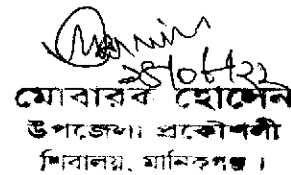 ২৪/০৮/২২
মোবারক হোসেন
উপজেলা প্রকৌশলী
শিবালয়, মানিকগঞ্জ।